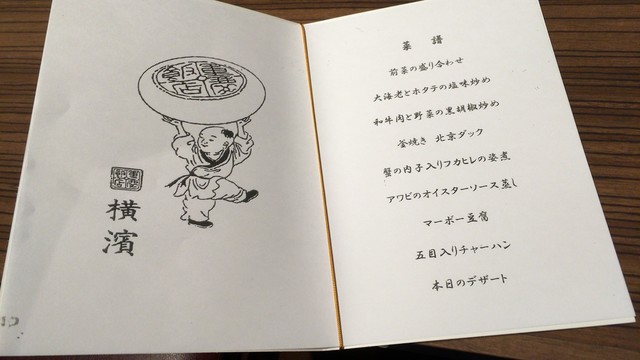 横
濱
菜 譜
前菜の盛り合わせ
大海老とホタテの塩味炒め
和牛肉と野菜の黒胡椒炒め
釜焼き 北京ダック
蟹の内子入りフカヒレの姿煮
アワビのオイスターソース蒸し
マーボー豆腐
五目入りチャーハン
本日のデザート